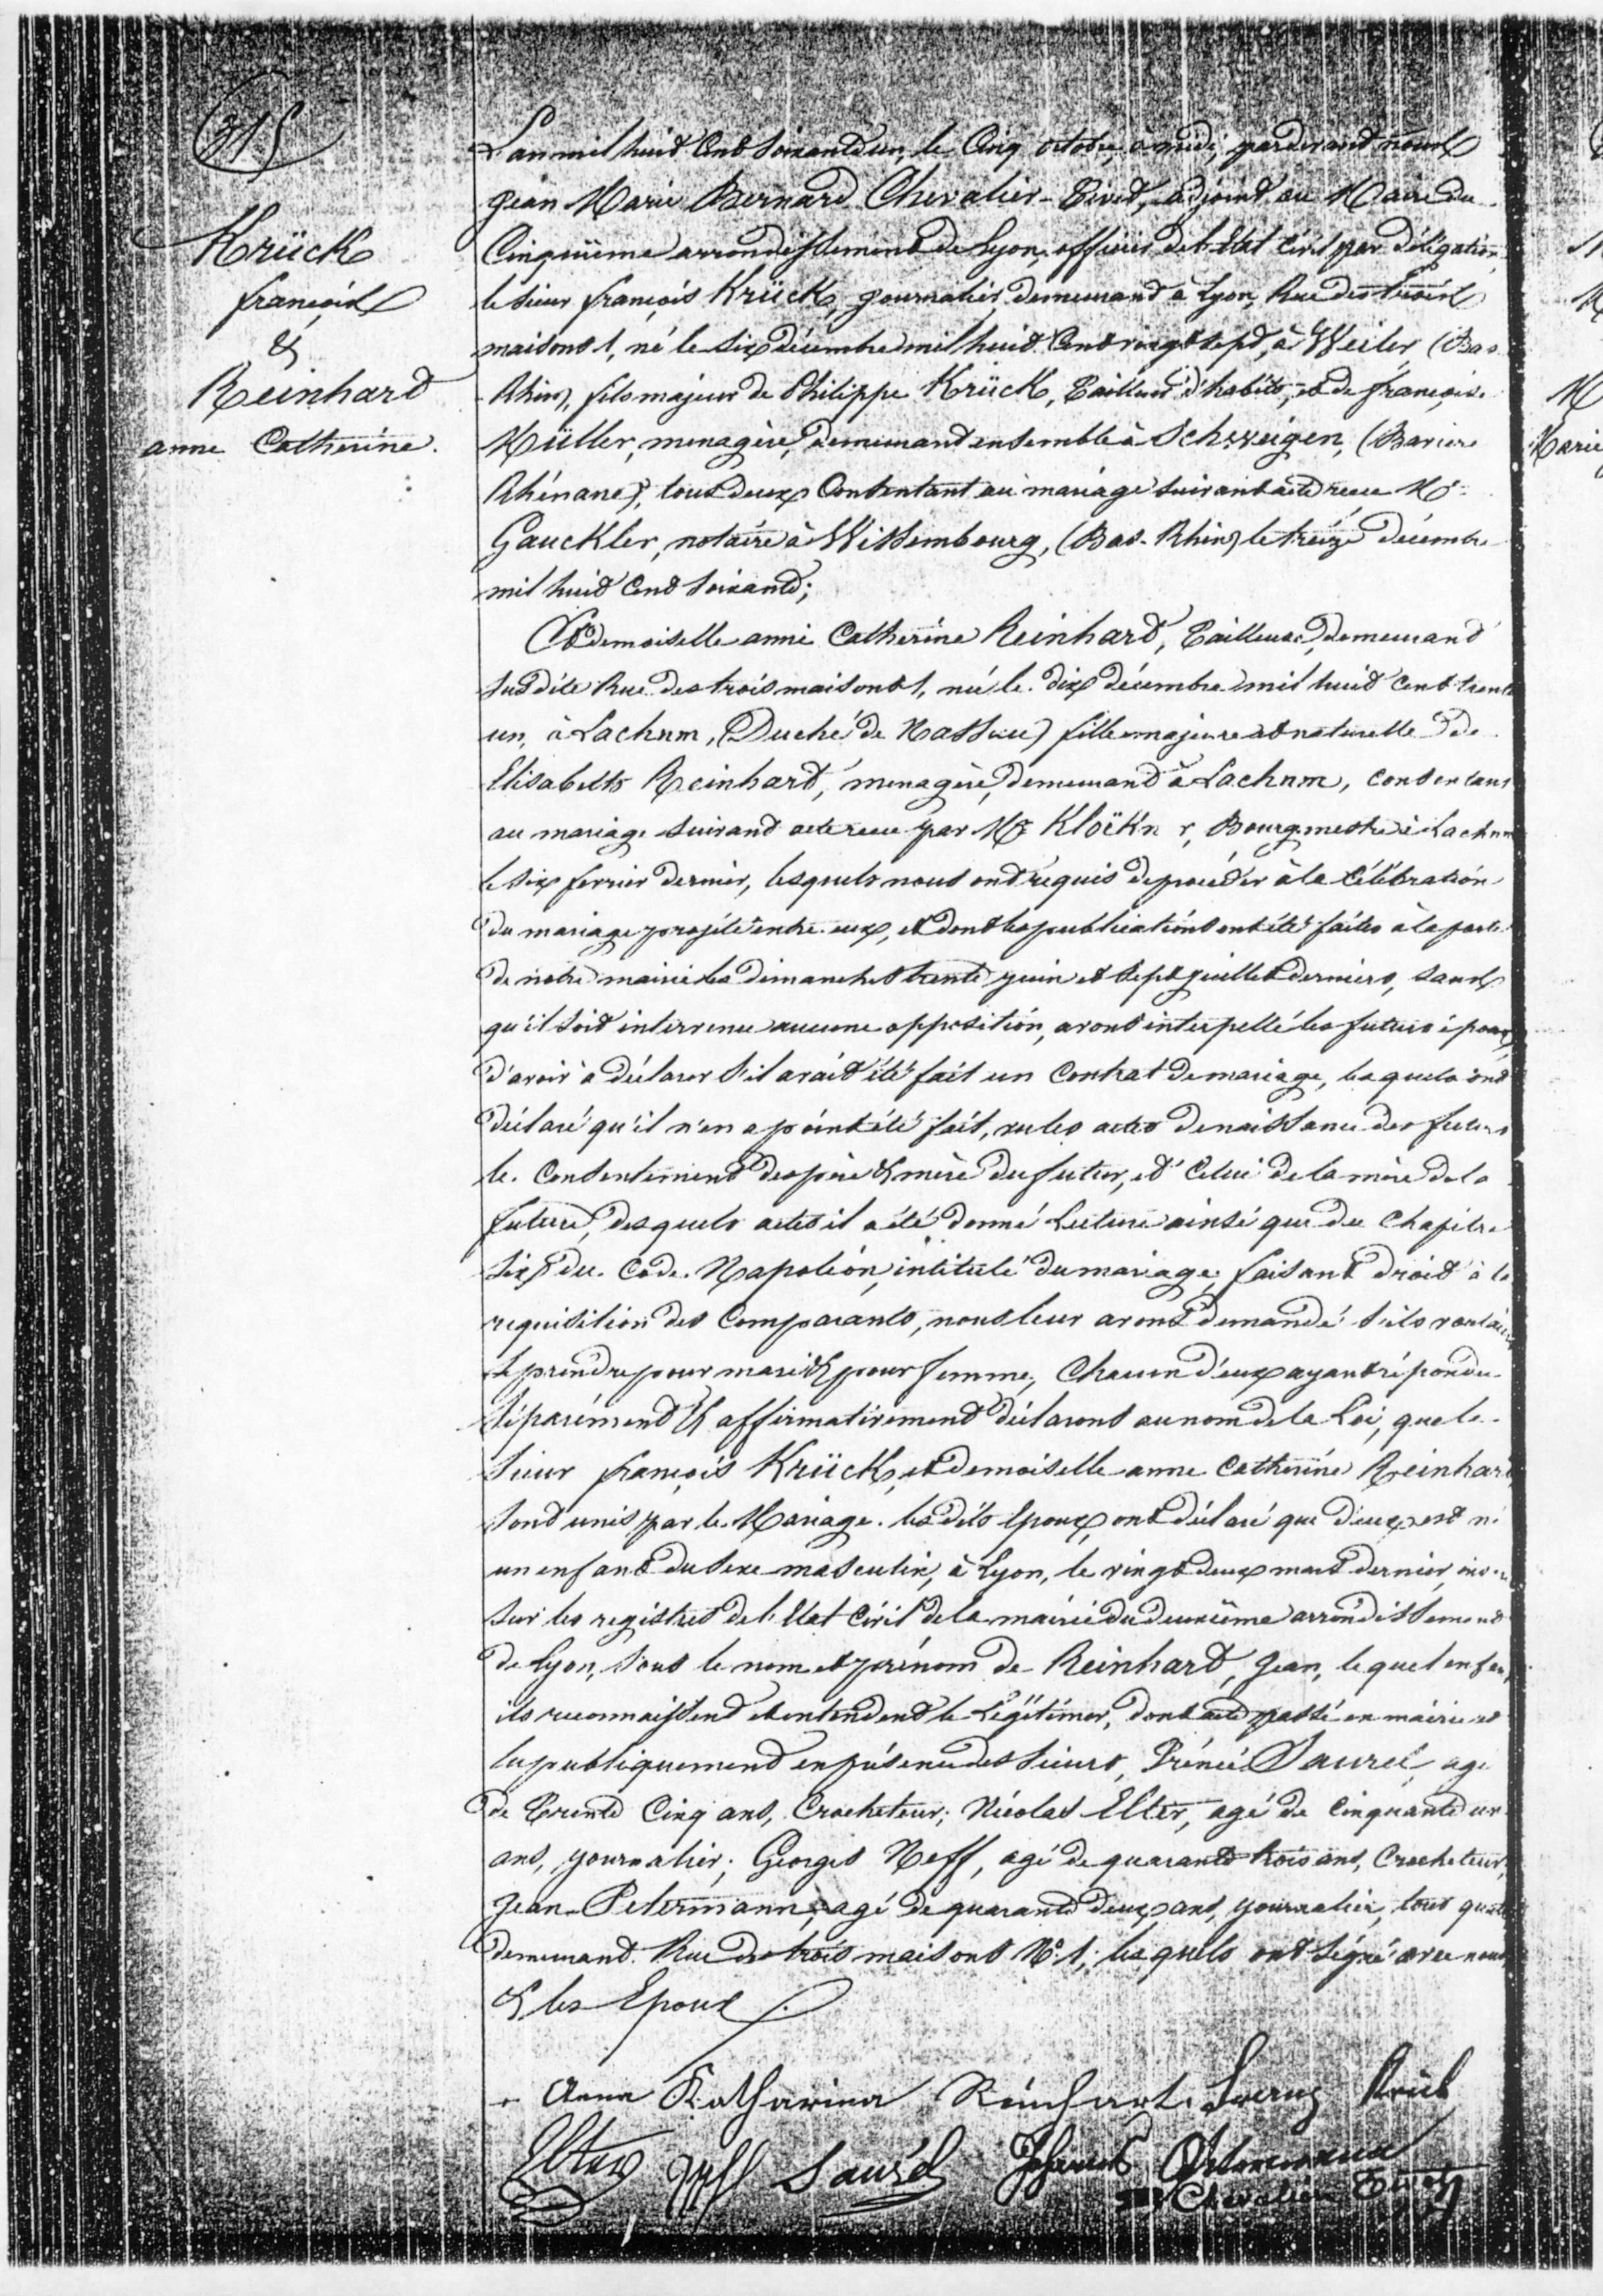 315
Krück
françois
&
Reinhard
anne Catherine.
L'an mil huit Cent soixante un, le Cinq octobre, à midi, pardevant nous
Jean Marie Bernard Chevalier-Tivet, adjoint au Maire du
Cinquième arrondissement de Lyon, officier de l'état civil par délégation,
le sieur françois Krück, journalier, demeurant à Lyon, Rue des trois
maisons 1, né le six décembre mil huit Cent vingt sept, à Weiler (Bas
Rhin), fils majeur de Philippe Krück, Tailleur d'habits, et de françoise
Müller, menagère, demeurant ensemble à Schweigen, (Baviere
Rhénane), tous deux Consentant au mariage suivant acte reçu Me
Gauckler, notaire à Wissembourg, (Bas-Rhin) le treize décembre
mil huit Cent soixante;
Et demoiselle anne Catherine Reinhard, Tailleuse, demeurant
susdite Rue des trois maisons 1, née le dix décembre mil huit Cent trente
un, à Lachum, (Duché de Nassau) fille majeure et naturelle de
Elisabeth Reinhard, menagère, demeurant à Lachum, consentant
au mariage suivant acte reçu par Mr Kloëkn r, Bourgmestre à Lachum
le six fevrier dernier, lesquels nous ont requis de procéder à la Célébration
du mariage projeté entre eux, et dont les publications ont été faites à la porte
de notre mairie les dimanches trente juin et sept juillet derniers, sans
qu'il soit intervenu aucune opposition, avons interpellé les futurs époux
d'avoir à déclarer s'il avait été fait un Contrat de mariage, lesquels ont
déclaré qu'il n'en a point été fait, vu les actes de naissance des futurs
le Consentement des père & mère du futur, et Celui de la mère de la
future, desquels actes il a été donné Lecture ainsi que du Chapitre
six du Code Napoléon, intitulé du mariage, faisant droit à la
requisition des Comparants, nous leur avons demandé s'ils voulaient
se prendre pour mari & pour femme, Chacun d'eux ayant répondu
séparément & affirmativement déclarons au nom de la Loi, que le
sieur françois Krück, et demoiselle anne Catherine Reinhard
sont unis par le Mariage. les dits Epoux ont déclaré que d'eux est né
un enfant du sexe masculin, à Lyon, le vingt deux mars dernier, inscrit
sur les registres de l'Etat Civil de la mairie du deuxième arrondissement
de Lyon, sous le nom et prénom de Reinhard, Jean, lequel enfant
ils reconnaissent et entendent le Légitimer, dont acte passé en mairie et
lu publiquement en présence des sieurs, Saurel agé
de Trente Cinq ans, Crocheteur; Nicolas Elter, agé de Cinquante un
ans, journalier; Georges Neff, agé de quarante trois ans, Crocheteur,
Jean Petermann, agé de quarante deux ans, journalier, tous quatre
demeurant Rue des trois maisons No 1; lesquels ont signé avec nous
& les Epoux
Anna Katharina Reinhart. Krük
Elter Neff Saurel Johannes Petermann
Chevalier Tivet
M
M
M
Marie